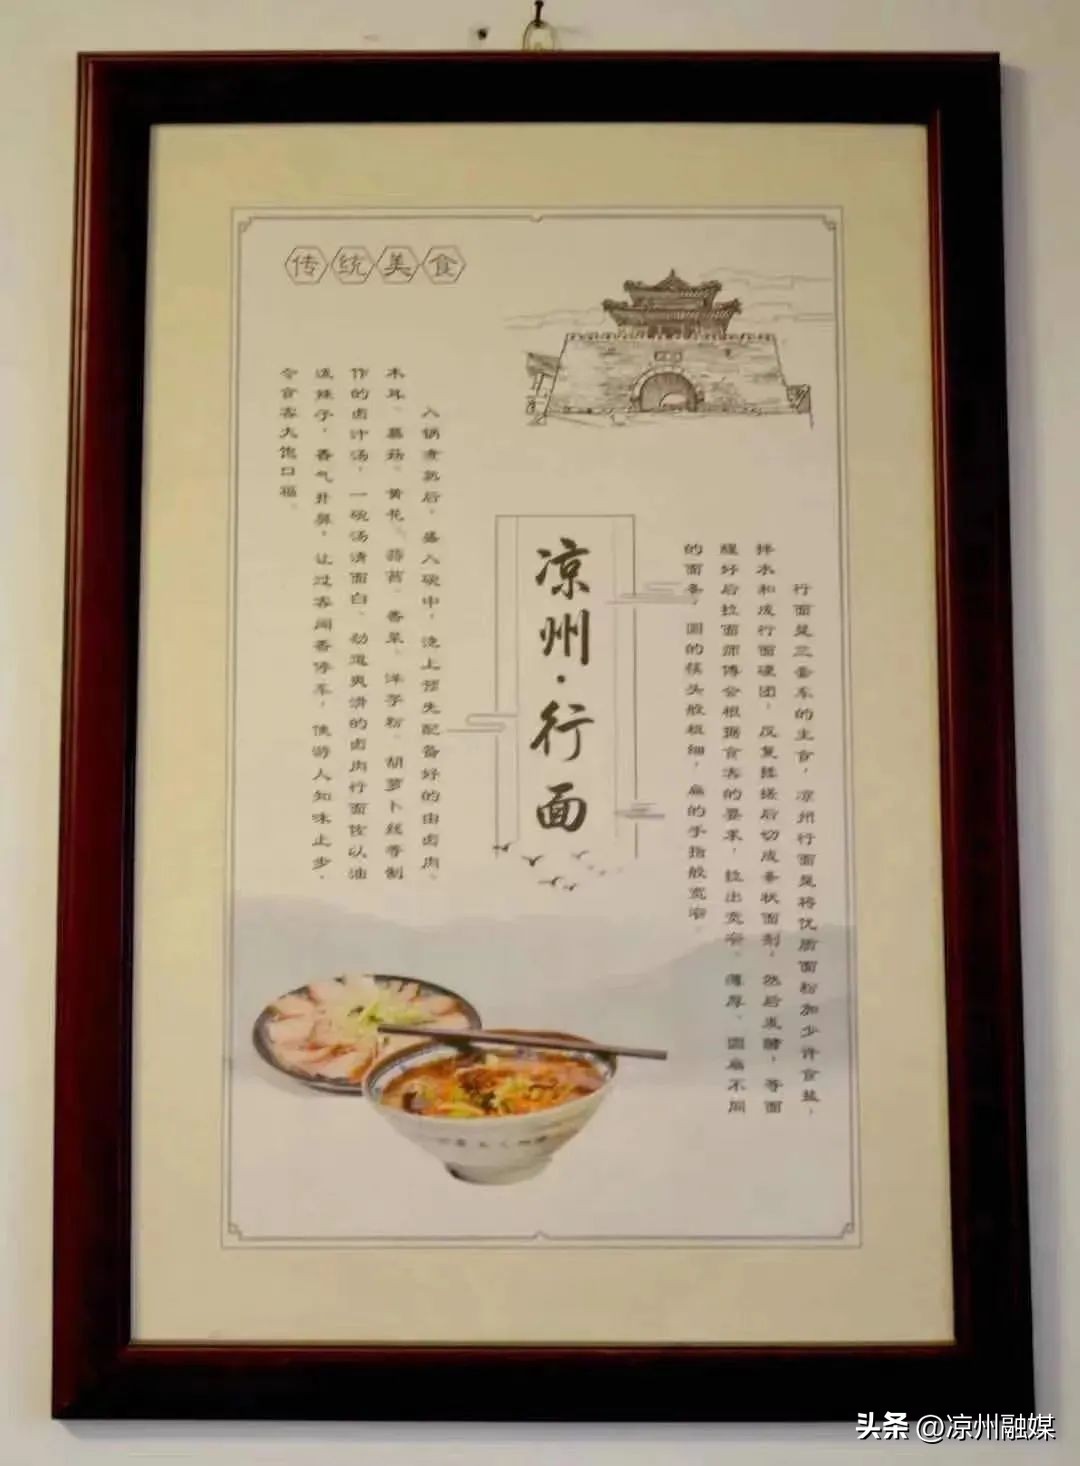 传统美食
凉州·行面
行面是三套车的主食，凉州行面是将优质面粉加少许食盐，
拌水和成行面硬团，反复揉搓后切成条状面剂，然后发酵，等面
醒好后拉面师傅会根据食客的要求，拉出宽窄、薄厚、圆扁不同
的面条，圆的筷头般粗细，扁的手指般宽窄。
入锅煮熟后，盛入碗中，浇上预先配备好的由卤肉、
木耳、蘑菇、黄花、蒜苗、香菜、洋芋粉、胡萝卜丝等制
作的卤汁汤，一碗汤清面白、劲道爽滑的卤肉行面佐以油
泼辣子，香气扑鼻，让过客闻香停车，使游人知味止步，
令食客大饱口福。
头条 @凉州融媒